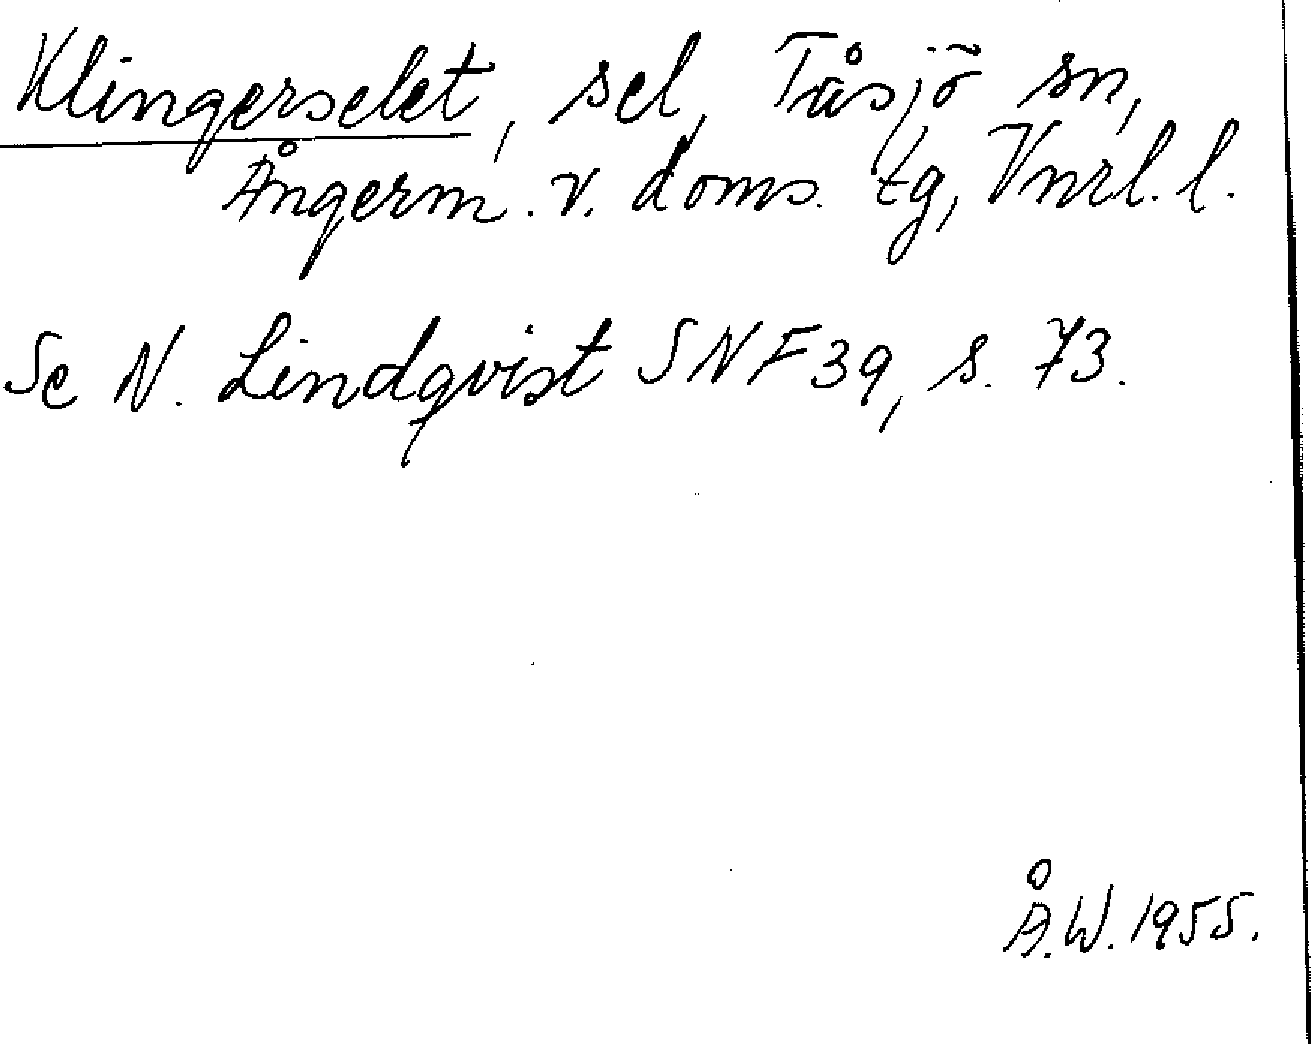 Klingerselet, sel, Tåsjö sn,
Ångerm. v. doms. tg, Vnrl. l.
Se N. Lindqvist SNF 39, s. 73.
Å.W. 1955.